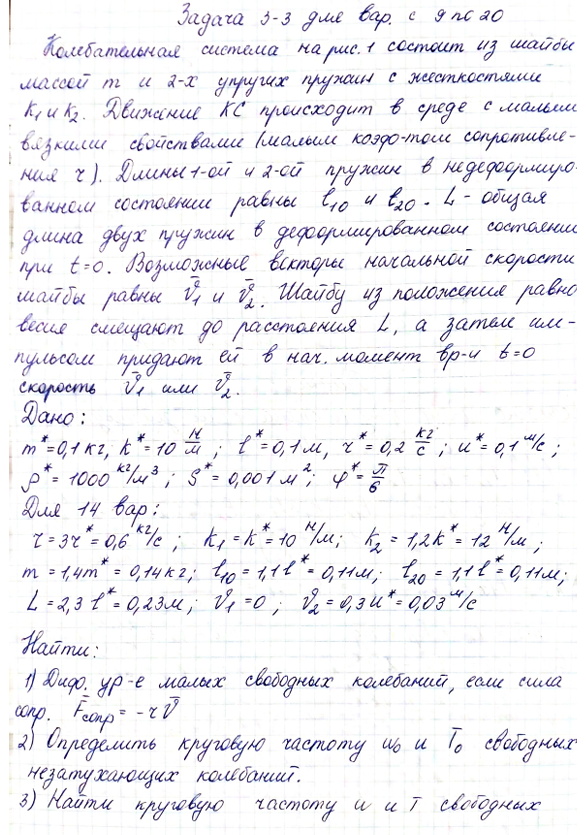 Задача 3-3 для вар. с 9 по 20
Колебательная система на рис. 1 состоит из шайбы
массой m и 2-х упругих пружин с жесткостями
k₁ и k₂. Движение КС происходит в среде с малыми
вязкими свойствами (малым коэф-том сопротивле-
ния r). Длины 1-ой и 2-ой пружин в недеформиро-
ванном состоянии равны l₁₀ и l₂₀. L - общая
длина двух пружин в деформированном состоянии
при t=0. Возможные векторы начальной скорости
шайбы равны v̄₁ и v̄₂. Шайбу из положения равно
весия смещают до расстояния L, а затем им-
пульсом придают ей в нач. момент вр-и t=0
скорость v̄₁ или v̄₂.
Дано:
m*=0,1 кг, k*=10 Н/м; l*=0,1 м, r*=0,2 кг/с; u*=0,1 м/с;
ρ*=1000 кг/м³; S*=0,001 м²; φ*=π/6
Для 14 вар:
r=3r*=0,6 кг/с; k₁=k*=10 Н/м; k₂=1,2k*=12 Н/м;
m=1,4m*=0,14 кг; l₁₀=1,1l*=0,11м; l₂₀=1,1l*=0,11м;
L=2,3l*=0,23м; v₁=0; v₂=0,3u*=0,03 м/с
Найти:
1) Диф. ур-е малых свободных колебаний, если сила
сопр. F̄сопр = -rv̄
2) Определить круговую частоту ω₀ и T₀ свободных
незатухающих колебаний.
3) Найти круговую частоту ω и T свободных